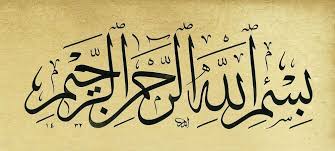 بِسْمِ اللهِ الرَّحْمٰنِ الرَّحِيمِ
١٤٣٢